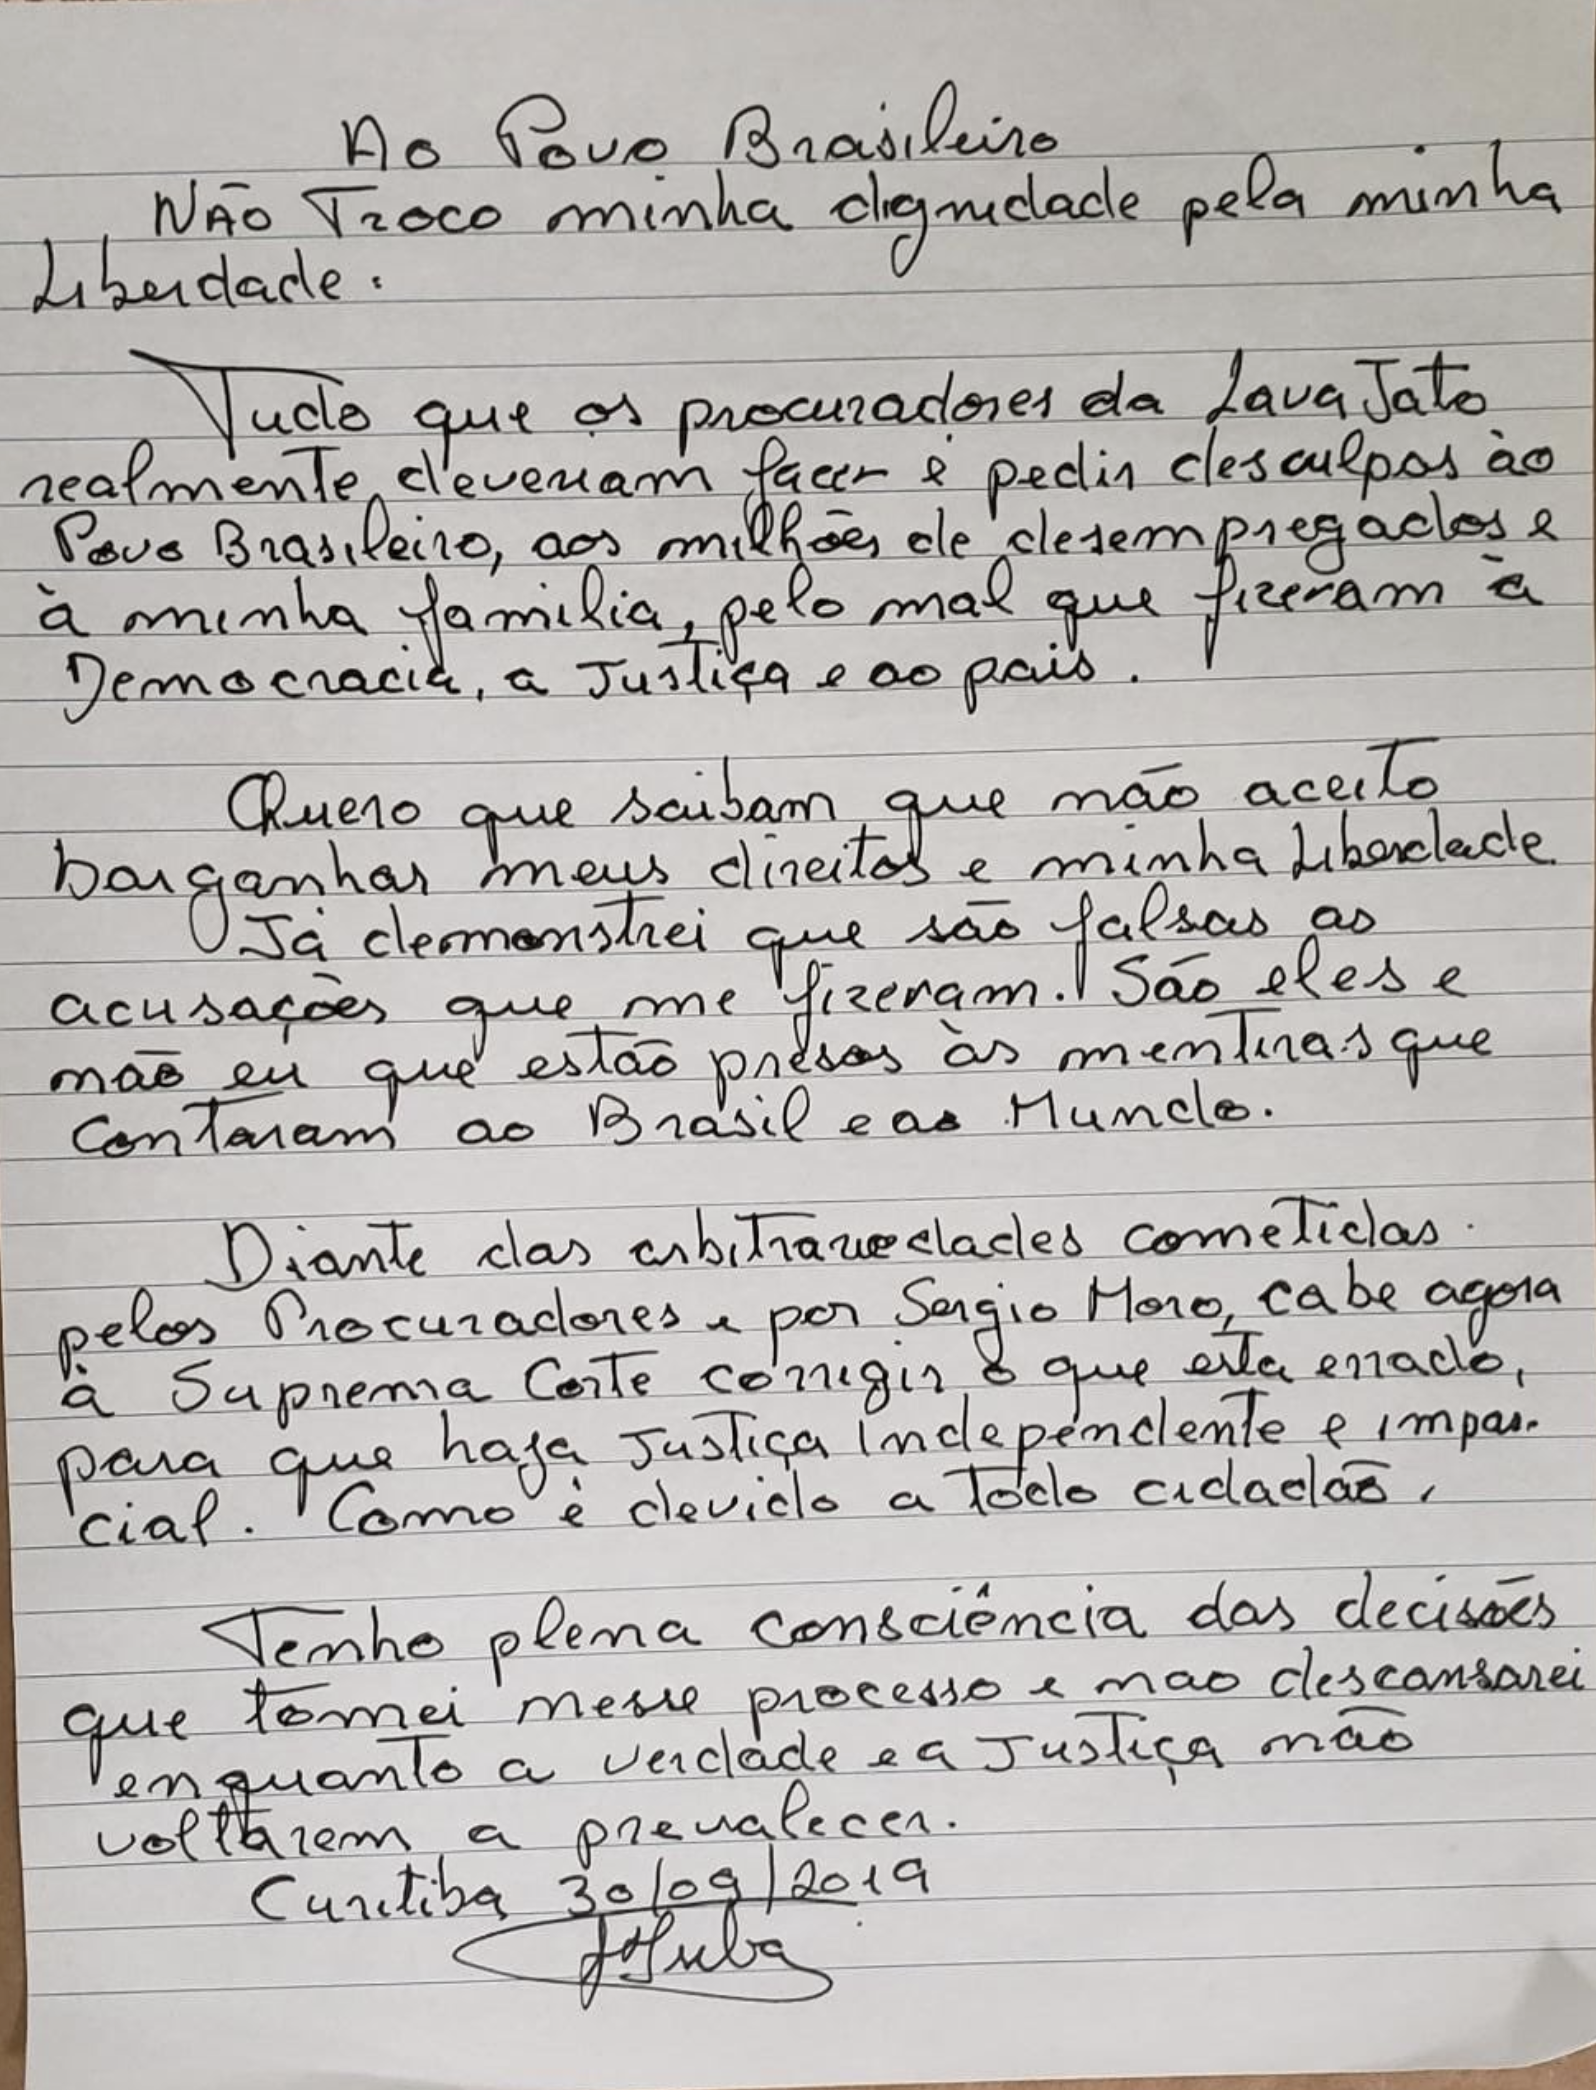 Ao Povo Brasileiro
Não Troco minha dignidade pela minha
Liberdade.
Tudo que os procuradores da Lava Jato
realmente deveriam fazer é pedir desculpas ào
Povo Brasileiro, aos milhões de desempregados e
à minha familia, pelo mal que fizeram à
Democracia, a Justiça e ao pais.
Quero que saibam que não aceito
barganhar meus direitos e minha Liberdade.
Já demonstrei que são falsas as
acusações que me fizeram. São eles e
não eu que estão presos às mentiras que
contaram ao Brasil e ao Mundo.
Diante das arbitrariedades cometidas
pelos Procuradores e por Sergio Moro, cabe agora
à Suprema Corte corrigir o que esta errado,
para que haja Justiça independente e impar-
cial. Como é devido a todo cidadão.
Tenho plena consciência das decisões
que tomei nesse processo e nao descansarei
enquanto a verdade e a Justiça não
voltarem a prevalecer.
Curitiba 30/09/2019